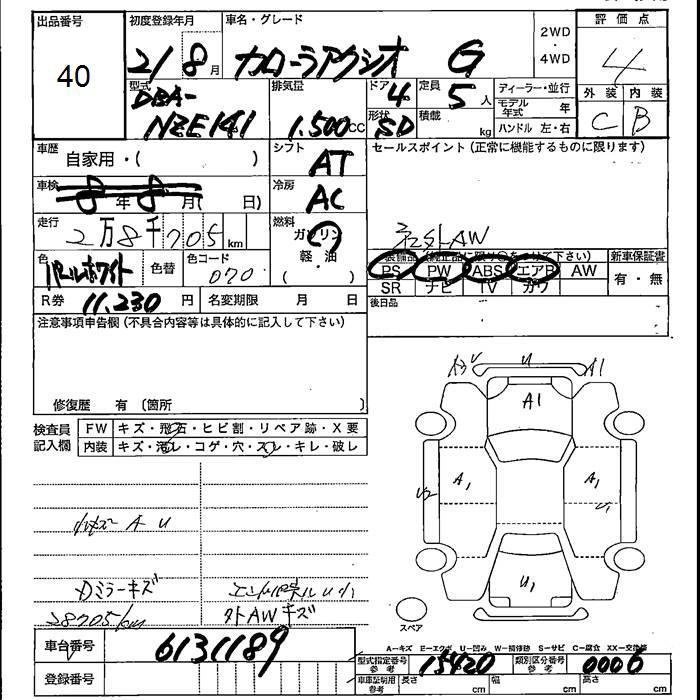 出品番号
40
初度登録年月
21 8 月
車名・グレード
カローラアクシオ G
2WD
・
4WD
評価点
4
外装 内装
C B
型式
DBA-
NZE141
排気量
1.500cc
ドア
4
形状
SD
定員
5 人
積載
kg
ディーラー・並行
モデル年式 年
ハンドル 左・右
車歴
自家用・( )
シフト
AT
セールスポイント (正常に機能するものに限ります)
社外AW
車検
8 年 8 月( 日)
冷房
AC
走行
2万8千705 km
燃料
ガソリン
軽・油
( )
色
パールホワイト
色替
色コード
070
装備品 (純正品に限り○をつけて下さい)
PS PW ABS エアB AW
SR ナビ TV カワ
新車保証書
有・無
R券 11.230 円
名変期限 月 日
後日品
注意事項申告欄 (不具合内容等は具体的に記入して下さい)
修復歴 有 〔箇所 〕
検査員
記入欄
FW キズ・飛石・ヒビ割・リペア跡・X要
内装 キズ・汚レ・コゲ・穴・スレ・キレ・破レ
小キズ A U
Dミラーキズ
28705km
外AWキズ
U
A1
A1
A1
A1
U2
U1
U1
スペア
A-キズ E-エクボ U-凹み W-補修跡 S-サビ C-腐食 XX-交換済
車台番号
6131189
登録番号
型式指定番号
参考
15420
類別区分番号
参考
0006
車庫証明用
参考
長さ cm
幅 cm
高さ cm